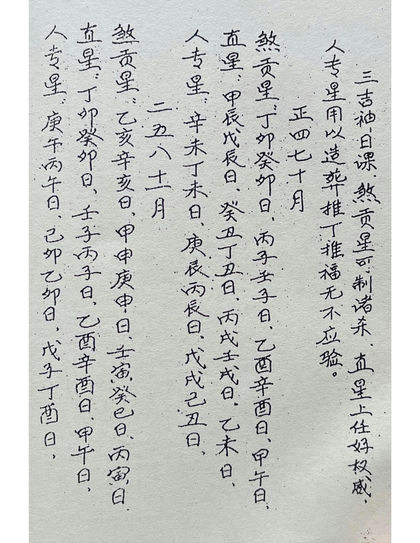 三吉神日课、煞贡星可制诸杀、直星上任好权威，
人专星用以造葬推丁推福无不应验。
正四七十月
煞贡星：丁卯癸卯日、丙子壬子日、乙酉辛酉日、甲午日，
直星：甲辰戊辰日、癸丑丁丑日、丙戌壬戌日、乙未日，
人专星：辛未丁未日、庚辰丙辰日、戊戌己丑日，
二五八十一月
煞贡星：乙亥辛亥日、甲申庚申日、壬寅癸巳日、丙寅日.
直星：丁卯癸卯日、壬子丙子日、乙酉辛酉日、甲午日，
人专星：庚午丙午日、己卯乙卯日，戊子丁酉日，